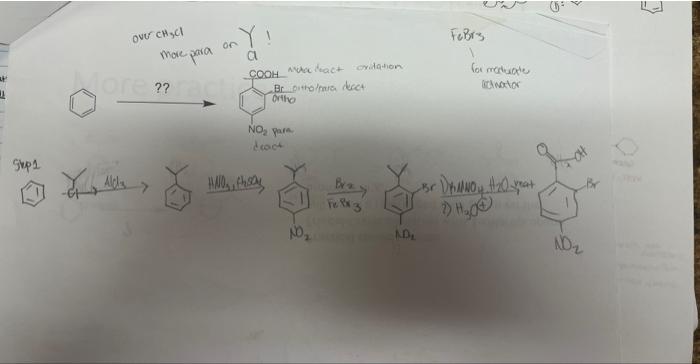 over CH3Cl
more para on !
Cl
FeBr3
for moderate
activator
??
COOH meta deact oxidation
Br ortho/para deact
ortho
NO2 para
deact
Step 1
Cl
AlCl3
HNO3, H2SO4
NO2
Br2
FeBr3
Br
NO2
1) KMnO4, H2O, heat
2) H3O+
O
OH
Br
NO2